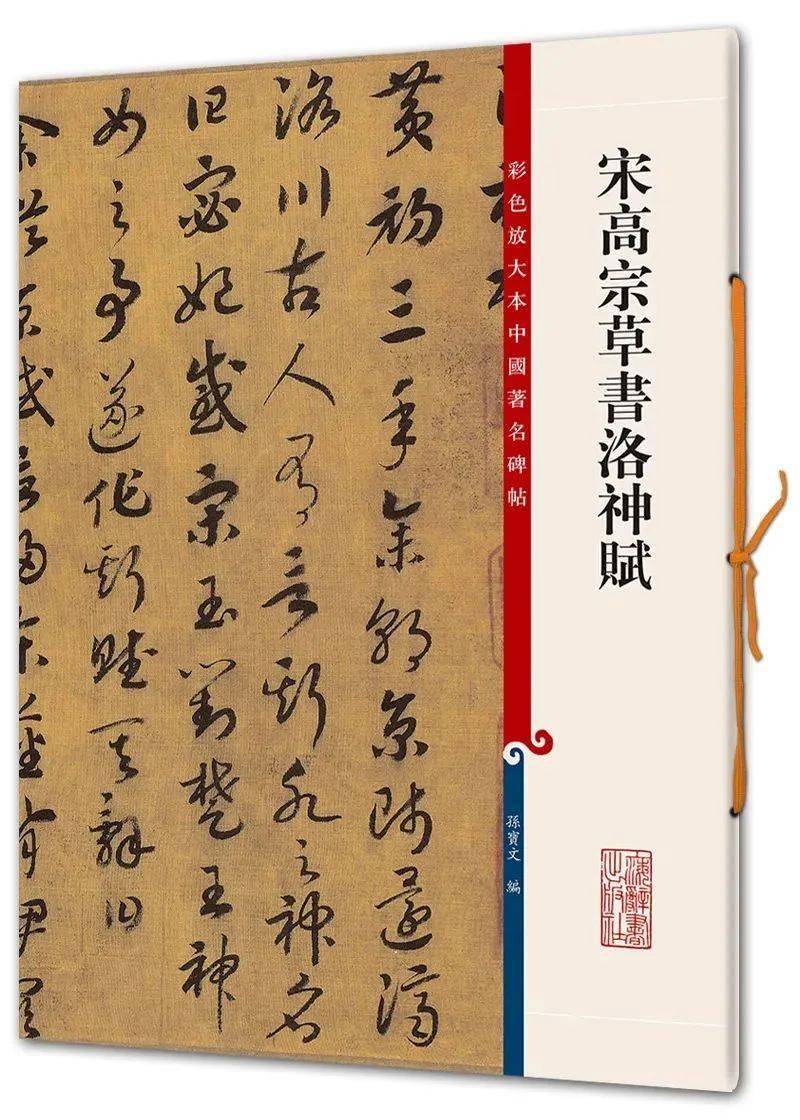 宋高宗草書洛神賦
上海辭書
出版社
彩色放大本中國著名碑帖
孫寶文 編
黄初三年余朝京師還濟
洛川古人有言斯水之神名
曰宓妃感宋玉對楚王神
女之事遂作斯賦其辭曰
余從京域言歸東藩背伊闕